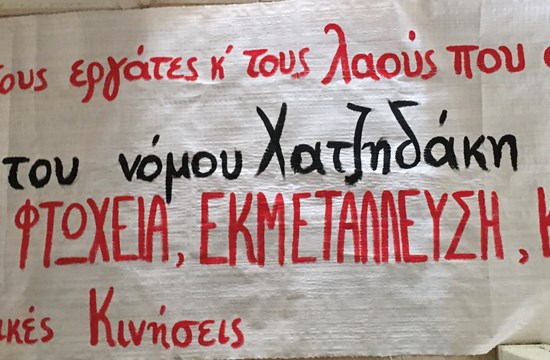 τους εργάτες κ' τους λαούς που
του νόμου Χατζηδάκη
ΦΤΩΧΕΙΑ, ΕΚΜΕΤΑΛΛΕΥΣΗ,
ικές Κινήσεις